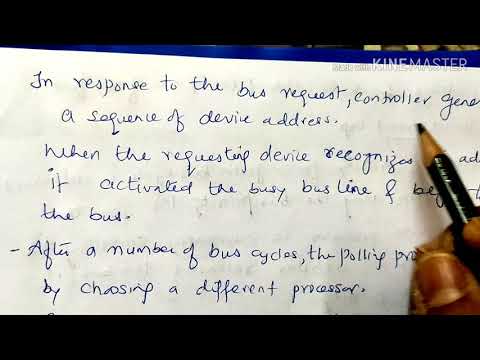 Made with KINEMASTER
In response to the bus request, controller gene
a sequence of device address.
When the requesting device recognizes ad
it activated the busy bus line &
the bus.
- After a number of bus cycles, the polling pro
by choosing a different processor.